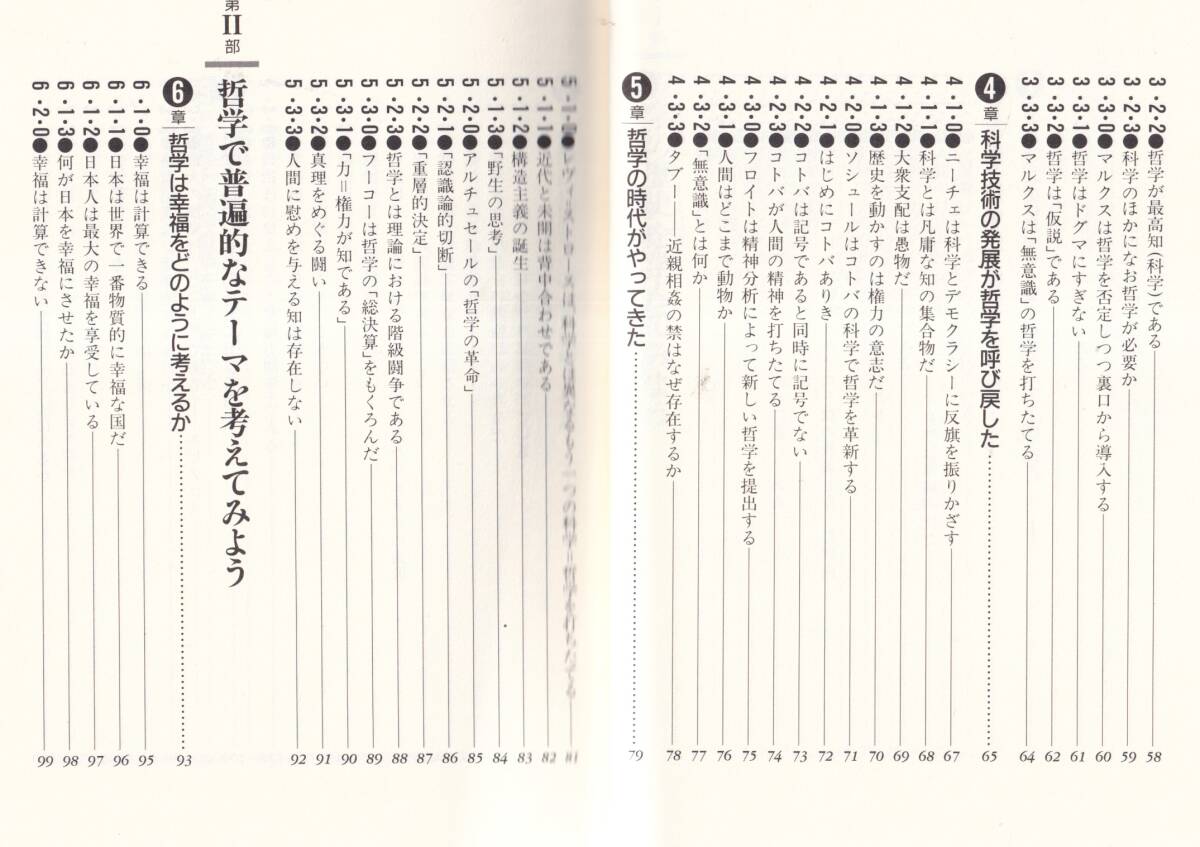 3・2・2●哲学が最高知(科学)である 58
3・2・3●科学のほかになお哲学が必要か 59
3・3・0●マルクスは哲学を否定しつつ裏口から導入する 60
3・3・1●哲学はドグマにすぎない 61
3・3・2●哲学は「仮説」である 62
3・3・3●マルクスは「無意識」の哲学を打ちたてる 64
4章 科学技術の発展が哲学を呼び戻した 65
4・1・0●ニーチェは科学とデモクラシーに反旗を振りかざす 67
4・1・1●科学とは凡庸な知の集合物だ 68
4・1・2●大衆支配は愚物だ 69
4・1・3●歴史を動かすのは権力の意志だ 70
4・2・0●ソシュールはコトバの科学で哲学を革新する 71
4・2・1●はじめにコトバありき 72
4・2・2●コトバは記号であると同時に記号でない 73
4・2・3●コトバが人間の精神を打ちたてる 74
4・3・0●フロイトは精神分析によって新しい哲学を提出する 75
4・3・1●人間はどこまで動物か 76
4・3・2●「無意識」とは何か 77
4・3・3●タブー——近親相姦の禁はなぜ存在するか 78
5章 哲学の時代がやってきた 79
5・1・0●レヴィ=ストロースは、科学とは異なるもう一つの科学=哲学を打ちたてる 81
5・1・1●近代と未開は背中合わせである 82
5・1・2●構造主義の誕生 83
5・1・3●「野生の思考」 84
5・2・0●アルチュセールの「哲学の革命」 85
5・2・1●「認識論的切断」 86
5・2・2●「重層的決定」 87
5・2・3●哲学とは理論における階級闘争である 88
5・3・0●フーコーは哲学の「総決算」をもくろんだ 89
5・3・1●「力=権力が知である」 90
5・3・2●真理をめぐる闘い 91
5・3・3●人間に慰めを与える知は存在しない 92
第II部 哲学で普遍的なテーマを考えてみよう
6章 哲学は幸福をどのように考えるか 93
6・1・0●幸福は計算できる 95
6・1・1●日本は世界で一番物質的に幸福な国だ 96
6・1・2●日本人は最大の幸福を享受している 97
6・1・3●何が日本を幸福にさせたか 98
6・2・0●幸福は計算できない 99